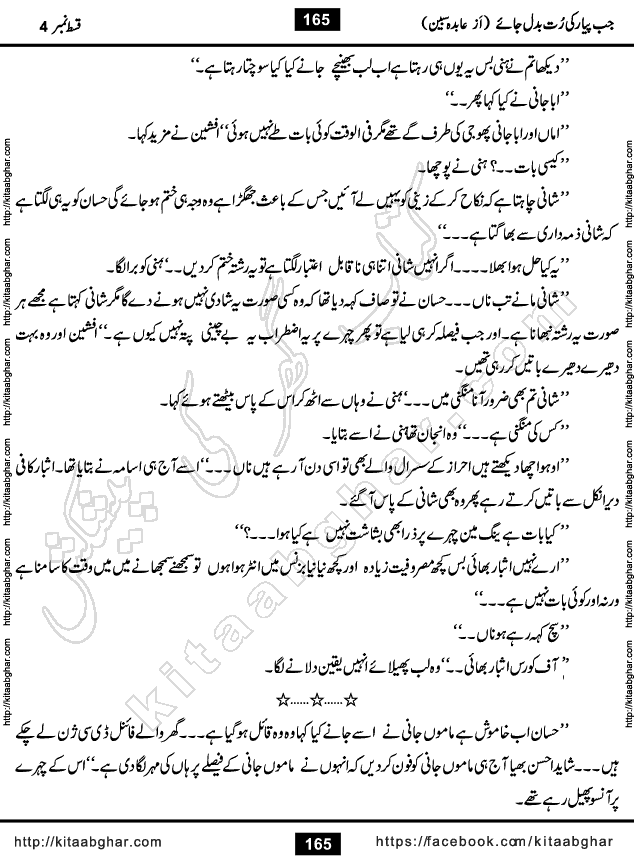 جب پیار کی رُت بدل جائے (از عابدہ سبین)
165
قسط نمبر 4
’’دیکھا تم نے ہنی بس یہ یوں ہی رہتا ہے اب لب بھینچے جانے کیا کیا سوچتا رہتا ہے۔‘‘
’’ابا جانی نے کیا کہا پھر۔۔‘‘
’’اماں اور ابا جانی پھوجی کی طرف گے تھے مگر فی الوقت کوئی بات طے نہیں ہوئی‘‘ افشین نے مزید کہا۔
’’کیسی بات۔۔؟ ہنی نے پوچھا۔
’’شانی چاہتا ہے کہ نکاح کر کے زینی کو یہیں لے آئیں جس کے باعث جھگڑا ہے وہ وجہ ہی ختم ہو جائے گی حسان کو یہ ہی لگتا ہے
کہ شانی ذمہ داری سے بھاگتا ہے۔۔۔‘‘
’’یہ کیا حل ہوا بھلا۔۔۔۔ اگر انہیں شانی اتنا ہی نا قابل اعتبار لگتا ہے تو یہ رشتہ ختم کر دیں۔۔‘‘ ہنی کو برا لگا۔
’’شانی مانے تب ناں۔۔۔ حسان نے تو صاف کہہ دیا تھا کہ وہ کسی صورت یہ شادی نہیں ہونے دے گا مگر شانی کہتا ہے مجھے ہر
صورت یہ رشتہ نبھانا ہے۔ اور جب فیصلہ کر ہی لیا ہے تو پھر چہرے پر یہ اضطراب یہ بے چینی پتہ نہیں کیوں ہے۔‘‘ افشین اور وہ بہت
دھیرے دھیرے باتیں کر رہی تھیں۔
’’شانی تم بھی ضرور آنا منگنی میں۔۔۔‘‘ ہنی نے وہاں سے اٹھ کر اس کے پاس بیٹھتے ہوئے کہا۔
’’کس کی منگنی ہے۔۔۔‘‘ وہ انجان تھا ہنی نے اسے بتایا۔
’’اوہو اچھا دیکھتے ہیں احراز کے سسرال والے بھی تو اسی دن آ رہے ہیں ناں۔۔۔‘‘ اسے آج ہی اسامہ نے بتایا تھا۔ اثبار کافی
دیر انکل سے باتیں کرتے رہے پھر وہ بھی شانی کے پاس آ گئے۔
’’کیا بات ہے ینگ مین چہرے پر ذرا بھی بشاشت نہیں ہے کیا ہوا۔۔۔؟‘‘
’’ارے نہیں اثبار بھائی بس کچھ مصروفیت زیادہ اور کچھ نیا نیا بزنس میں انٹر ہوا ہوں تو سمجھنے سمجھانے میں میں وقت کا سامنا ہے
ورنہ اور کوئی بات نہیں ہے۔۔۔‘‘
’’سچ کہہ رہے ہو ناں۔۔‘‘
’’آف کورس اثبار بھائی۔۔‘‘ وہ لب پھیلائے انہیں یقین دلانے لگا۔
☆......☆......☆
’’حسان اب خاموش ہے ماموں جانی نے اسے جانے کیا کہا وہ وہ قائل ہو گیا ہے۔۔۔ گھر والے فائنل ڈی سی ژن لے چکے
ہیں۔۔۔ شاید احسن بھیا آج ہی ماموں جانی کو فون کر دیں کہ انہوں نے ماموں جانی کے فیصلے پر ہاں کی مہر لگا دی ہے۔‘‘ اس کے چہرے
پر آنسو پھیل رہے تھے۔
http://kitaabghar.com
165
https://facebook.com/kitaabghar
http://kitaabghar.com
http://kitaabghar.com
http://kitaabghar.com
http://kitaabghar.com
http://kitaabghar.com
http://kitaabghar.com
http://kitaabghar.com
http://kitaabghar.com
http://kitaabghar.com
http://kitaabghar.com
http://kitaabghar.com
http://kitaabghar.com
کتاب گھر کی پیشکش
kitaabghar.com